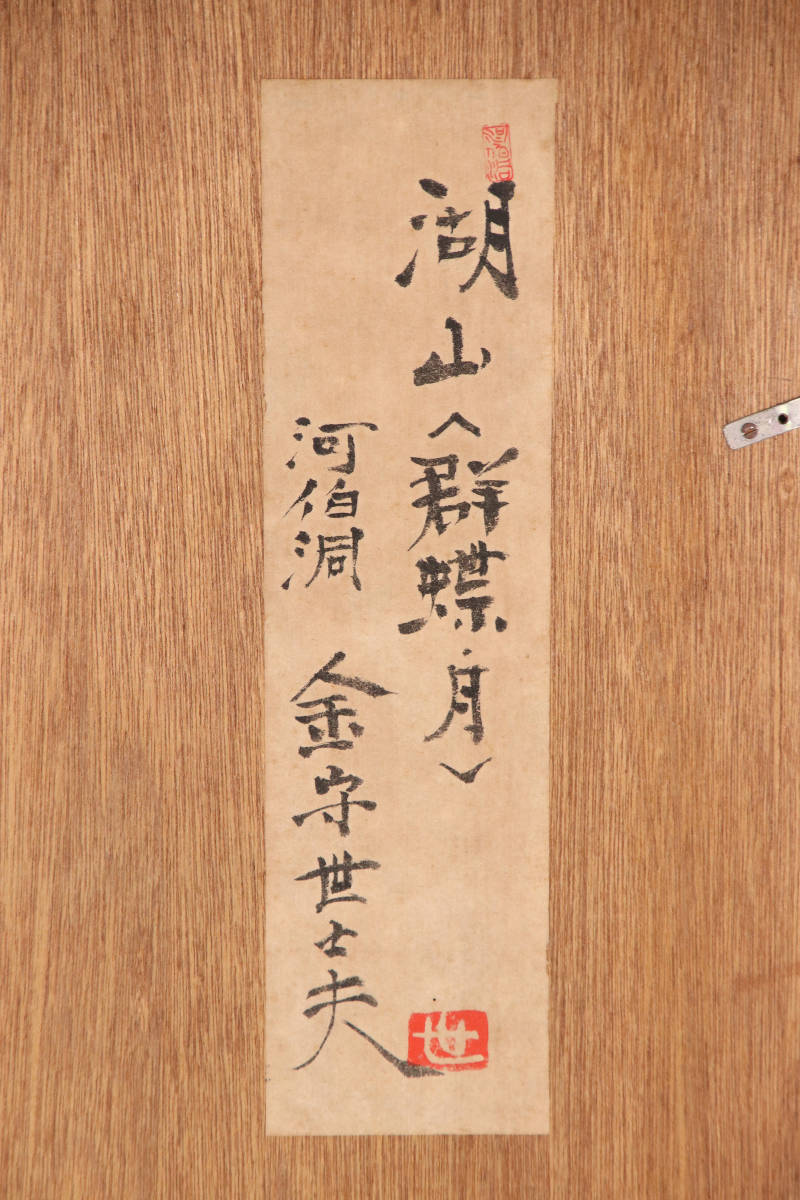 湖山〈群蝶舟〉
河伯洞 金守世士夫
世